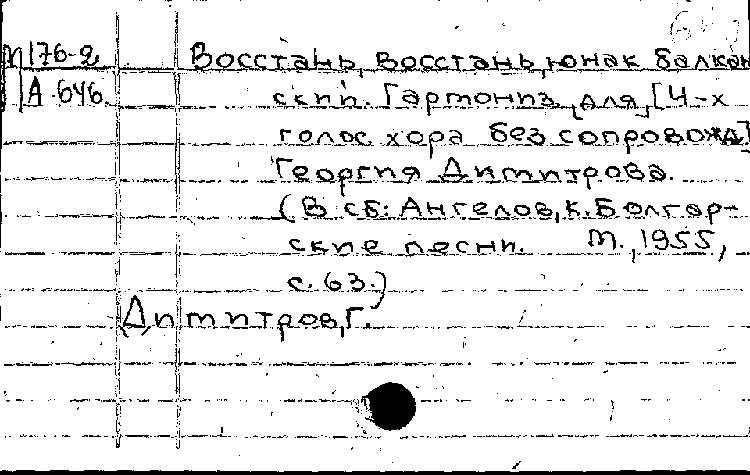 М 176-2 Восстань, восстань, юнак балкан
А-646. ский. Гармониз. для [4-х
голос. хора без сопровожд]
Георгия Димитрова.
(В сб: Ангелов, К. Болгар-
ские песни. М., 1955,
с. 63.)
Димитров, Г.